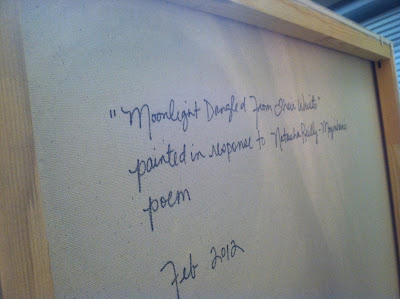 "Moonlight Dangled From Their Wrists"
painted in response to Natasha Reilly-Moynihan's
poem
Feb 2012